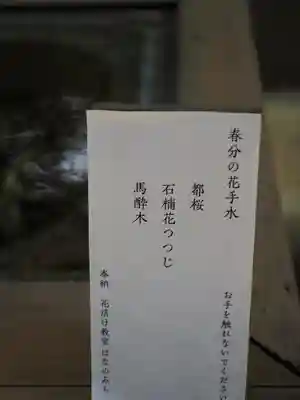 春分の花手水
お手を触れないでください
都桜
石楠花つつじ
馬酔木
奉納 花活け教室はなのみち